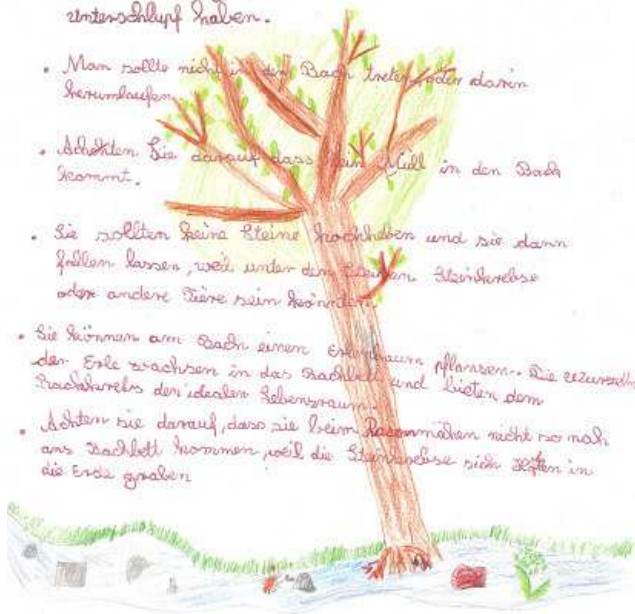 Unterschlupf haben.
• Man sollte nicht in den Bach treten oder darin
herumlaufen
• Achten Sie darauf dass kein Müll in den Bach
kommt.
• Sie sollten keine Steine hochheben und sie dann
fallen lassen, weil unter den Steinen Steinkrebse
oder andere Tiere sein könnten.
• Sie können am Bach einen Erlenbaum pflanzen. Die
der Erle wachsen in das Bachbett und bieten dem
Bachkrebs den idealen Lebensraum.
• Achten sie darauf, dass sie beim Rasenmähen nicht so nah
ans Bachbett kommen, weil die Steinkrebse sich in
die Erde graben